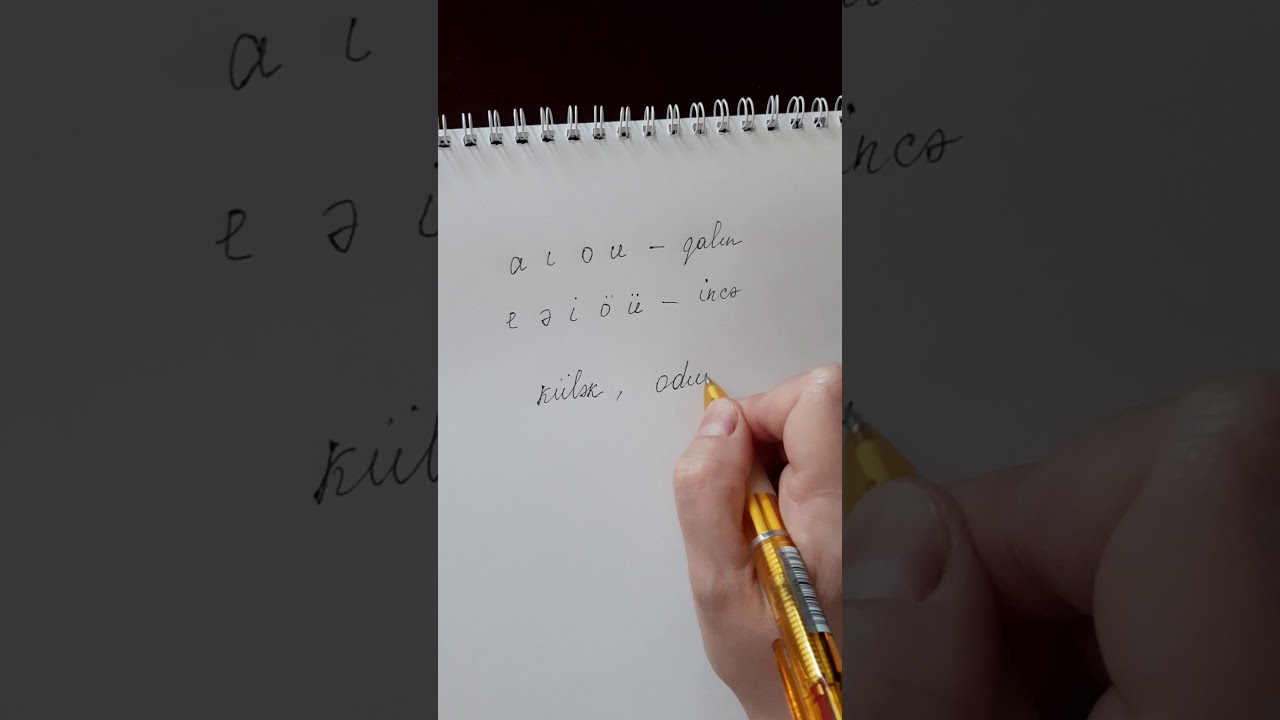 a ı o u – qalın
e ə i ö ü – incə
külək, odu